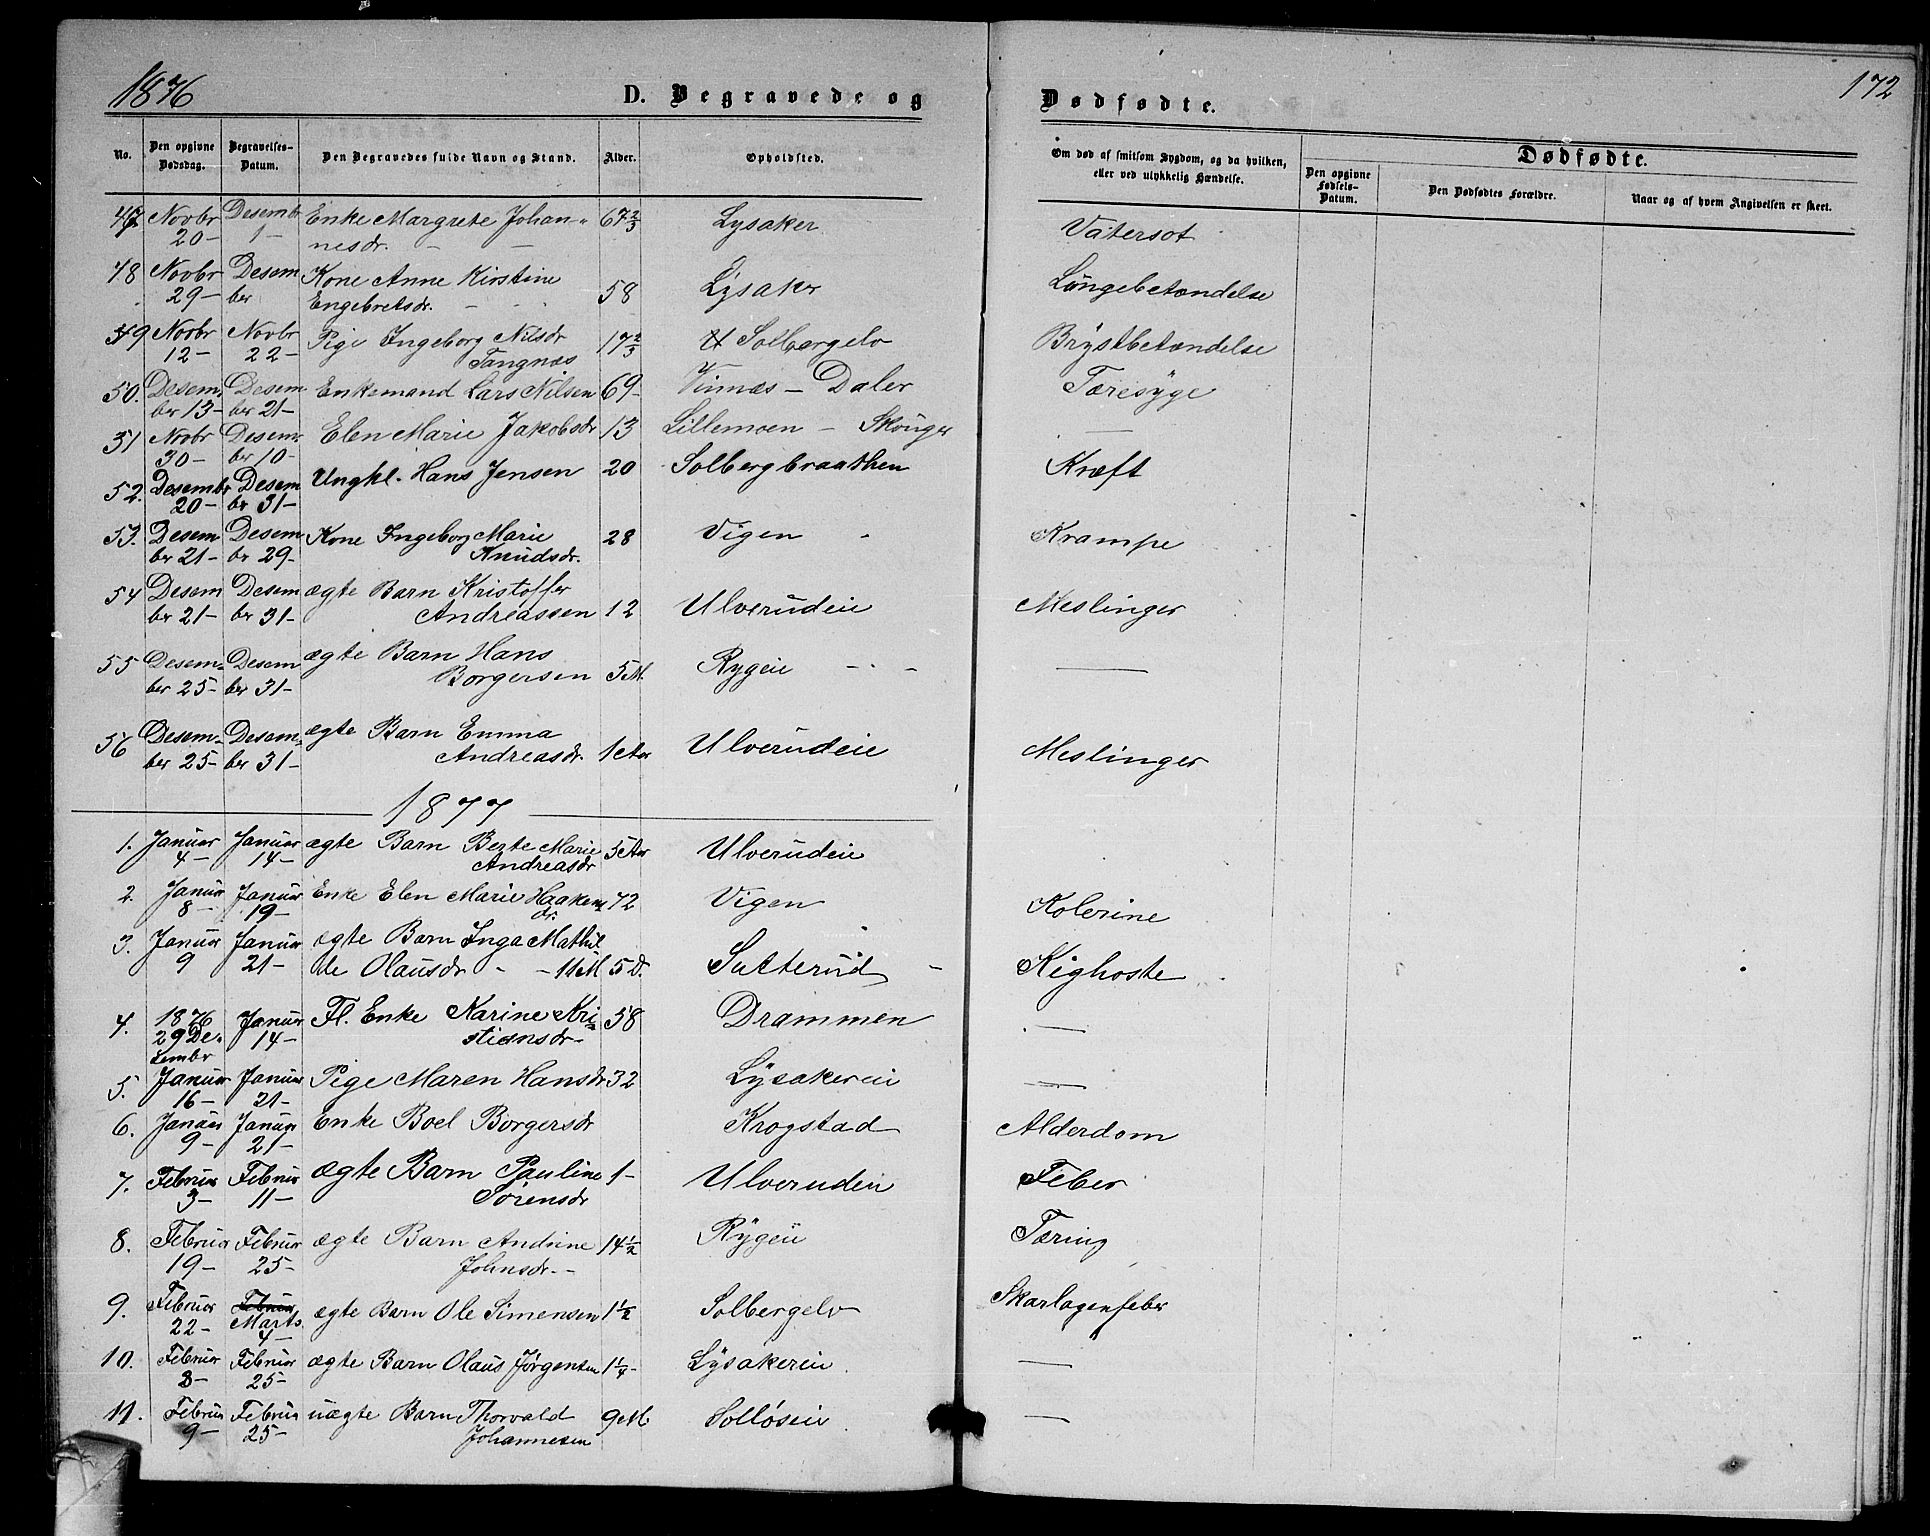 1876
D. Begravede og Dødfødte.
172
No. | Den opgivne Dødsdag. | Begravelses-Datum. | Den Begravedes fulde Navn og Stand. | Alder. | Opholdsted. | Om død af smitsom Sygdom, og da hvilken, eller ved ulykkelig Hændelse. | Dødfødte. | Den opgivne Fødsels-Datum. | Den Dødfødtes Forældre. | Naar og af hvem Angivelsen er skeet.
47 | Novbr 20 — | Desembr 1 — | Enke Margrete Johannesdr. — — | 67 2/3 | Lysaker | Vatersot
48 | Novbr 29 — | Desember | Kone Anne Kirstine Engebretsdr. — | 58 | Lysaker | Lungebetændelse
49 | Novbr 12 — | Novbr 22 — | Pige Ingeborg Nilsdr Tangnæs | 17 2/3 | Solbergelv | Brystbetændelse
50. | Desember 13 — | Desember 21 — | Enkemand Lars Nilsen | 69 — | Vinnæs — Daler | Tæresyge
51 | Novbr 30 — | Desember 10 — | Elen Marie Jakobsdr | 13 | Lillemoen — Skouger | —
52. | Desembr 20 — | Desember 31 — | Ungkl. Hans Jensen | 20 | Solbergbraathen | Kræft
53. | Desember 21 — | Desember 29 — | Kone Ingeborg Marie Knudsdr. | 28 | Vigen | Krampe
54 | Desember 21 — | Desember 31 — | ægte Barn Kristoffer Andreassen | 12 | Ulverudeie | Meslinger
55 | Desember 25 — | Desember 31 — | ægte Barn Hans Borgersen | 5 M. | Rygeie | —
56 | Desember 25 — | Desember 31 — | ægte Barn Emma Andreasdr. | 1 Aar | Ulverudeie | Meslinger
1877
1. | Januar 4 — | Januar 14 — | ægte Barn Berte Marie Andreasdr | 5 Aar | Ulverudeie
2. | Januar 8 — | Januar 19 — | Enke Elen Marie Haakensdr. | 72 | Vigen | Kolerine
3. | Januar 9 | Januar 21 — | ægte Barn Inga Mathilde Olausdr — | 11 M 5 D. | Sutterud | Kighoste
4. | 1876 29 Desembr | Januar 14 — | Fl. Enke Karine Kristiansdr — | 58 | Drammen | —
5. | Januar 16 — | Januar 21 — | Pige Maren Hansdr | 32 | Lysakereie | —
6. | Januar 9 — | Januar 21 — | Enke Boel Borgersdr | Krogstad | Alderdom
7. | Februar 3 — | Februar 11 — | ægte Barn Pauline Sörensdr | 1 — | Ulverudeie | Feber
8. | Februar 19 — | Februar 25 — | ægte Barn Andrine Johnsdr. — | 14 1/2 | Rygeie | Tæring
9. | Februar 22 — | Marts 4 — | ægte Barn Ole Simensen | 1 1/2 | Solbergelv | Skarlagenfeber
10. | Februar 3 — | Februar 25 — | ægte Barn Olaus Jørgensen | 1 1/4 — | Lysakereie | —
11. | Februar 9 — | Februar 25 — | uægte Barn Thorvald Johannesen | 9 M. | Solløseie | —